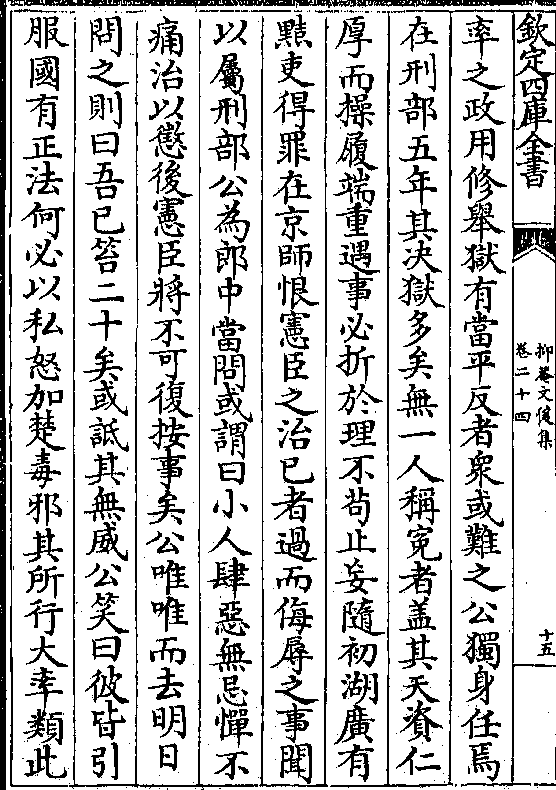 欽定四庫全書
抑菴文後集
卷二十四
十五
率之政用修舉獄有當平反者衆或難之公獨身任焉
在刑部五年其决獄多矣無一人稱寃者盖其天資仁
厚而操履端重遇事必折於理不茍止妄隨初湖廣有
黠吏得罪在京師恨憲臣之治已者過而侮辱之事聞
以屬刑部公為郎中當問或謂曰小人肆惡無忌憚不
痛治以懲後憲臣將不可復按事矣公唯唯而去明日
問之則曰吾已笞二十矣或詆其無威公笑曰彼皆引
服國有正法何必以私怒加楚毒邪其所行大率類此